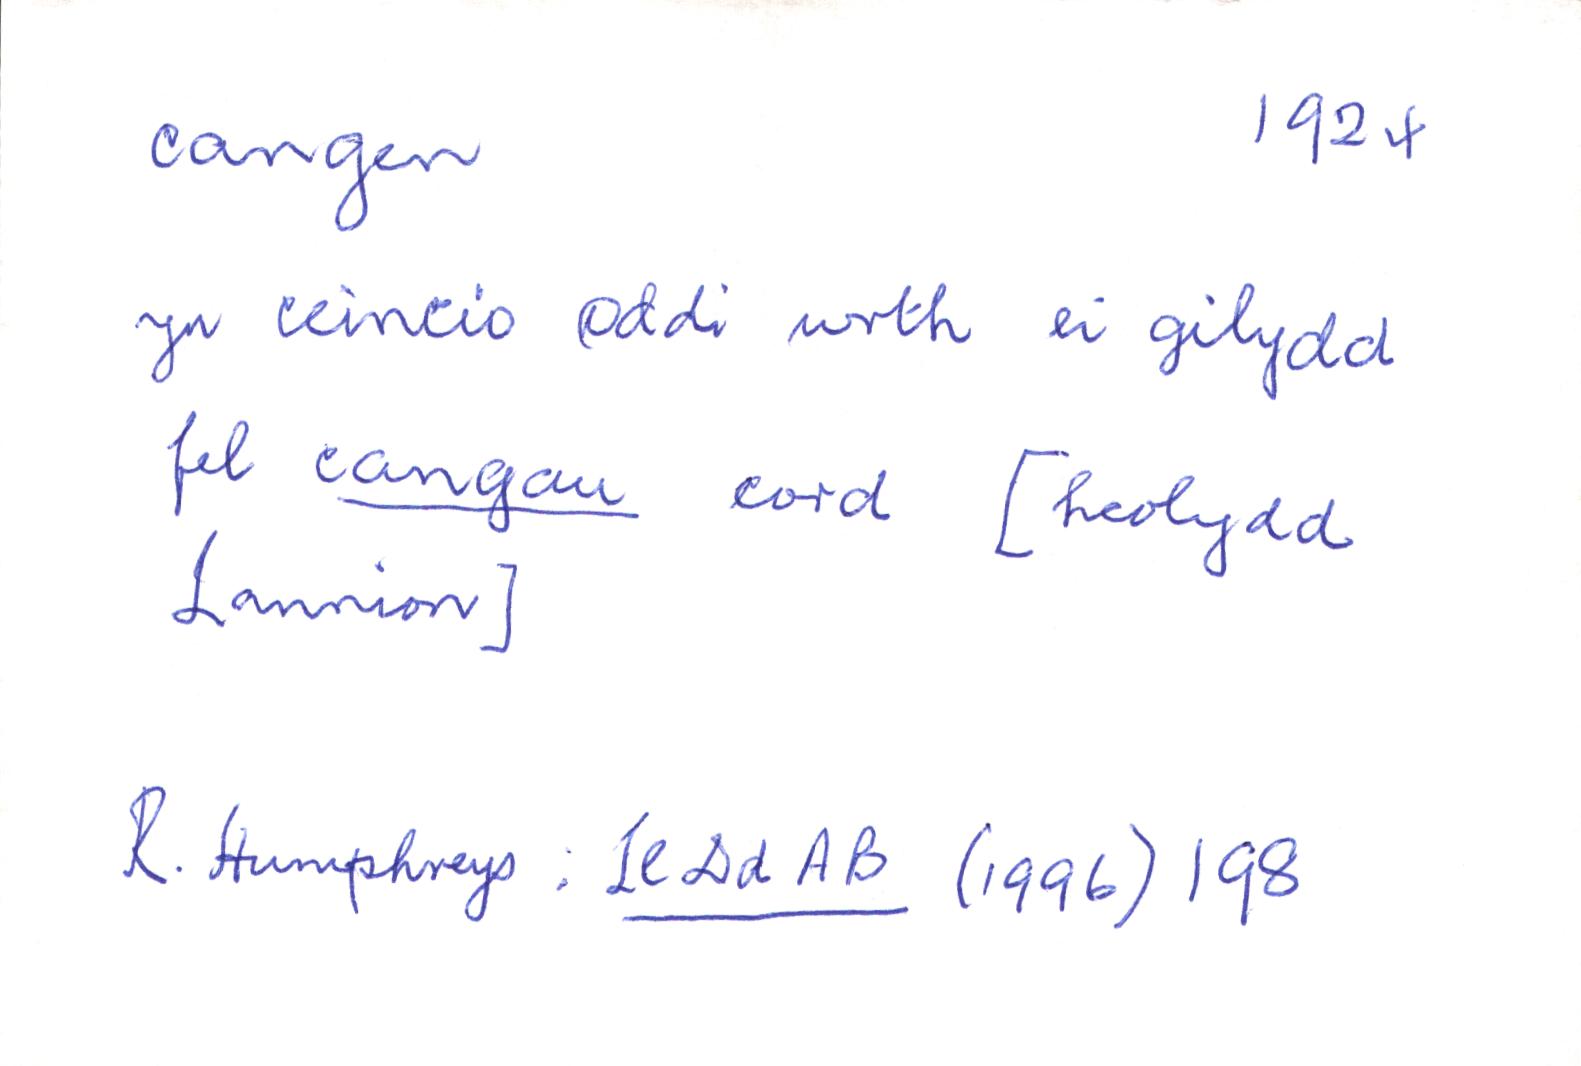 cangen 1924
yn ceincio oddi wrth ei gilydd
fel cangau cord [heolydd
Lannion]
R. Humphreys : Ll Dd A B (1996) 198